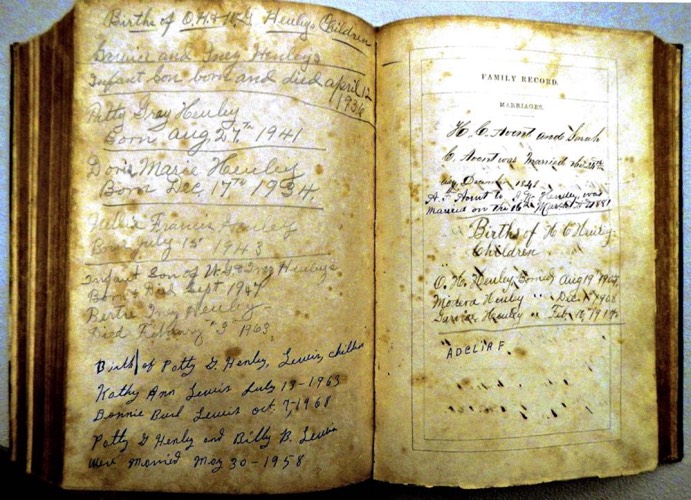 Births of O.H. & W.G. Henley's Children
Garvice and Inez Henleys
Infant Son born and died april 12
1936
Patty Gray Henley
Born Aug 27th 1941
Doris Marie Henley
Born Dec 17th 1934.
Francis Henley
Born July 15 1943
Infant Son of W.G & Inez Henleys
Born & Died Sept 1947
Bertie Inez Henley
Died Febuary 3 1963
Birth of Patty G. Henley, Lewis, children
Kathy Ann Lewis July 19-1963
Bonnie Burl Lewis oct. 7, 1968
Patty G Henley and Billy B. Lewis
were Married May 30-1958
FAMILY RECORD.
MARRIAGES.
H. C. Avent and Sarah
C. Avent was Married
December 1841
A. Avent to J. W. Henley was
married on the 16th March 1881
Births of H C Henley
Children
O. H. Henley, Aug 19
Henley " Dec. 1908
Garvice Henley " Feb. 10,
ADELIA F